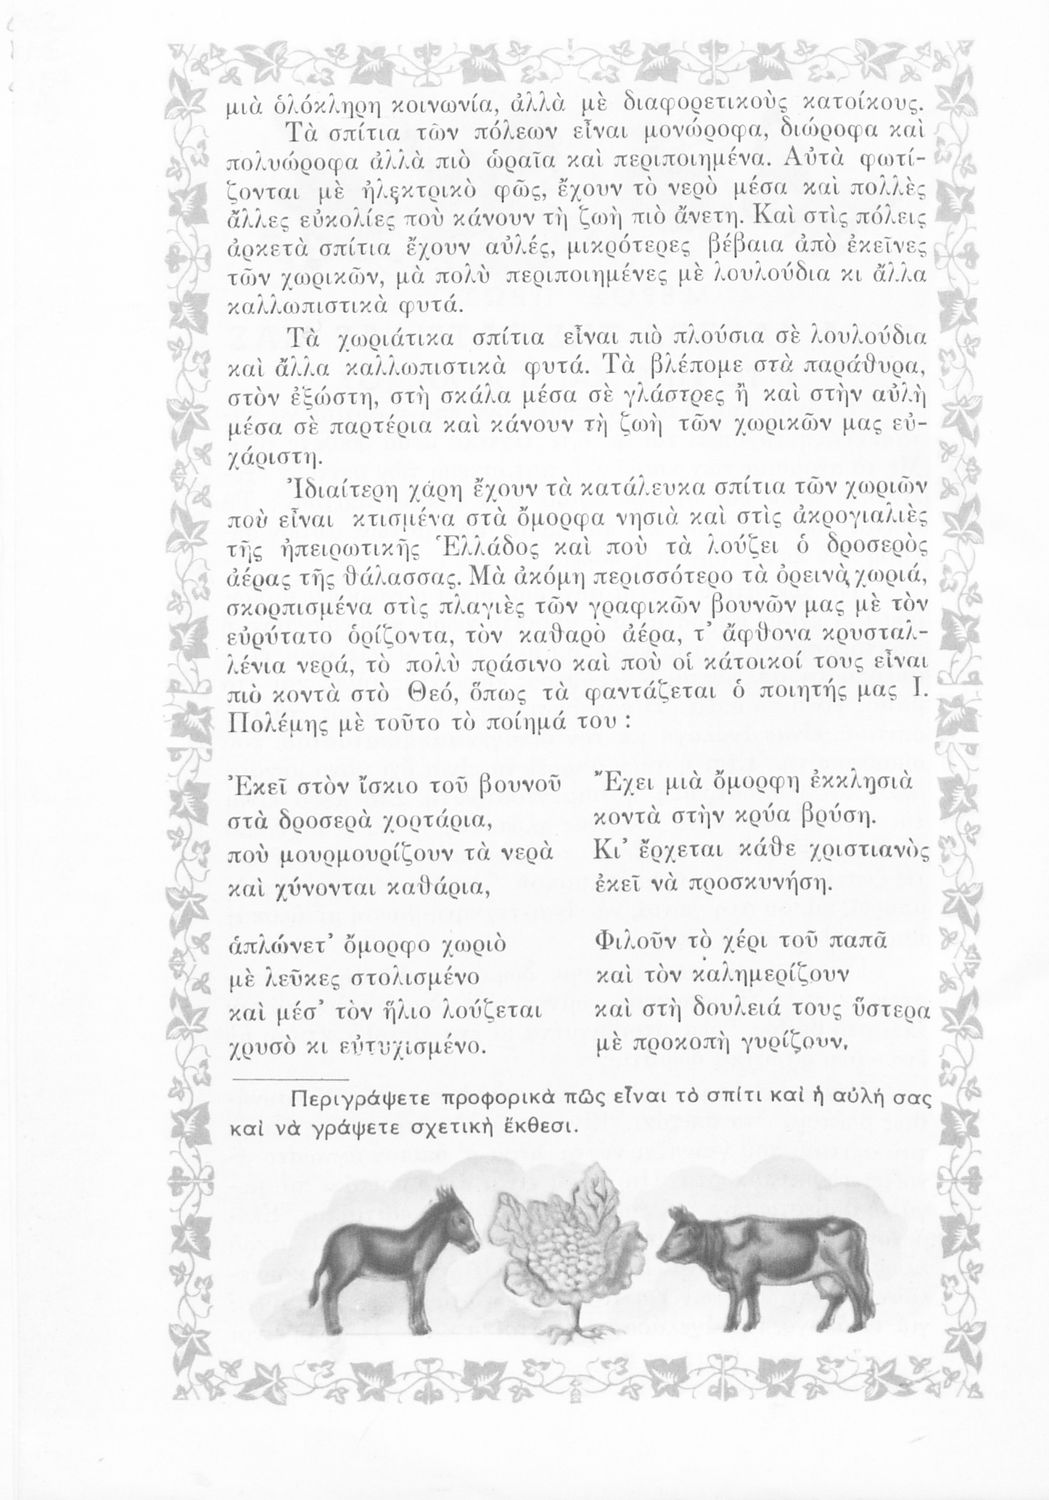 μιὰ ὁλόκληρη κοινωνία, ἀλλὰ μὲ διαφορετικοὺς κατοίκους.
Τὰ σπίτια τῶν πόλεων εἶναι μονώροφα, διώροφα καὶ
πολυώροφα ἀλλὰ πιὸ ὡραῖα καὶ περιποιημένα. Αὐτὰ φωτί-
ζονται μὲ ἠλεκτρικὸ φῶς, ἔχουν τὸ νερὸ μέσα καὶ πολλὲς
ἄλλες εὐκολίες ποὺ κάνουν τὴ ζωὴ πιὸ ἄνετη. Καὶ στὶς πόλεις
ἀρκετὰ σπίτια ἔχουν αὐλές, μικρότερες βέβαια ἀπὸ ἐκεῖνες
τῶν χωρικῶν, μὰ πολὺ περιποιημένες μὲ λουλούδια κι ἄλλα
καλλωπιστικὰ φυτά.
Τὰ χωριάτικα σπίτια εἶναι πιὸ πλούσια σὲ λουλούδια
καὶ ἄλλα καλλωπιστικὰ φυτά. Τὰ βλέπομε στὰ παράθυρα,
στὸν ἐξώστη, στὴ σκάλα μέσα σὲ γλάστρες ἢ καὶ στὴν αὐλὴ
μέσα σὲ παρτέρια καὶ κάνουν τὴ ζωὴ τῶν χωρικῶν μας εὐ-
χάριστη.
Ἰδιαίτερη χάρη ἔχουν τὰ κατάλευκα σπίτια τῶν χωριῶν
ποὺ εἶναι κτισμένα στὰ ὄμορφα νησιὰ καὶ στὶς ἀκρογιαλιὲς
τῆς ἠπειρωτικῆς Ἑλλάδος καὶ ποὺ τὰ λούζει ὁ δροσερὸς
ἀέρας τῆς θάλασσας. Μὰ ἀκόμη περισσότερο τὰ ὀρεινὰ χωριά,
σκορπισμένα στὶς πλαγιὲς τῶν γραφικῶν βουνῶν μας μὲ τὸν
εὐρύτατο ὁρίζοντα, τὸν καθαρὸ ἀέρα, τ' ἄφθονα κρυσταλ-
λένια νερά, τὸ πολὺ πράσινο καὶ ποὺ οἱ κάτοικοί τους εἶναι
πιὸ κοντὰ στὸ Θεό, ὅπως τὰ φαντάζεται ὁ ποιητής μας Ι.
Πολέμης μὲ τοῦτο τὸ ποίημά του :
Ἐκεῖ στὸν ἴσκιο τοῦ βουνοῦ
στὰ δροσερὰ χορτάρια,
ποὺ μουρμουρίζουν τὰ νερὰ
καὶ χύνονται καθάρια,
ἁπλώνετ' ὄμορφο χωριὸ
μὲ λεῦκες στολισμένο
καὶ μέσ' τὸν ἥλιο λούζεται
χρυσὸ κι εὐτυχισμένο.
Ἔχει μιὰ ὄμορφη ἐκκλησιὰ
κοντὰ στὴν κρύα βρύση.
Κι' ἔρχεται κάθε χριστιανὸς
ἐκεῖ νὰ προσκυνήση.
Φιλοῦν τὸ χέρι τοῦ παπᾶ
καὶ τὸν καλημερίζουν
καὶ στὴ δουλειά τους ὕστερα
μὲ προκοπὴ γυρίζουν.
Περιγράψετε προφορικὰ πῶς εἶναι τὸ σπίτι καὶ ἡ αὐλή σας
καὶ νὰ γράψετε σχετικὴ ἔκθεσι.